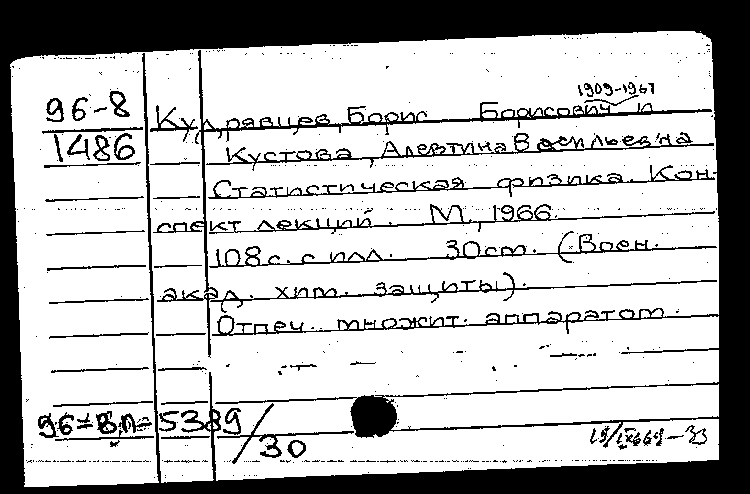 1909-1967
96-8 Кудрявцев, Борис Борисович и
1486 Кустова, Алевтина Васильевна
Статистическая физика. Кон-
спект лекций. М., 1966.
108 с. с илл. 30 см. (Воен.
акад. хим. защиты).
Отпеч. множит. аппаратом.
96=В.П=5389/30